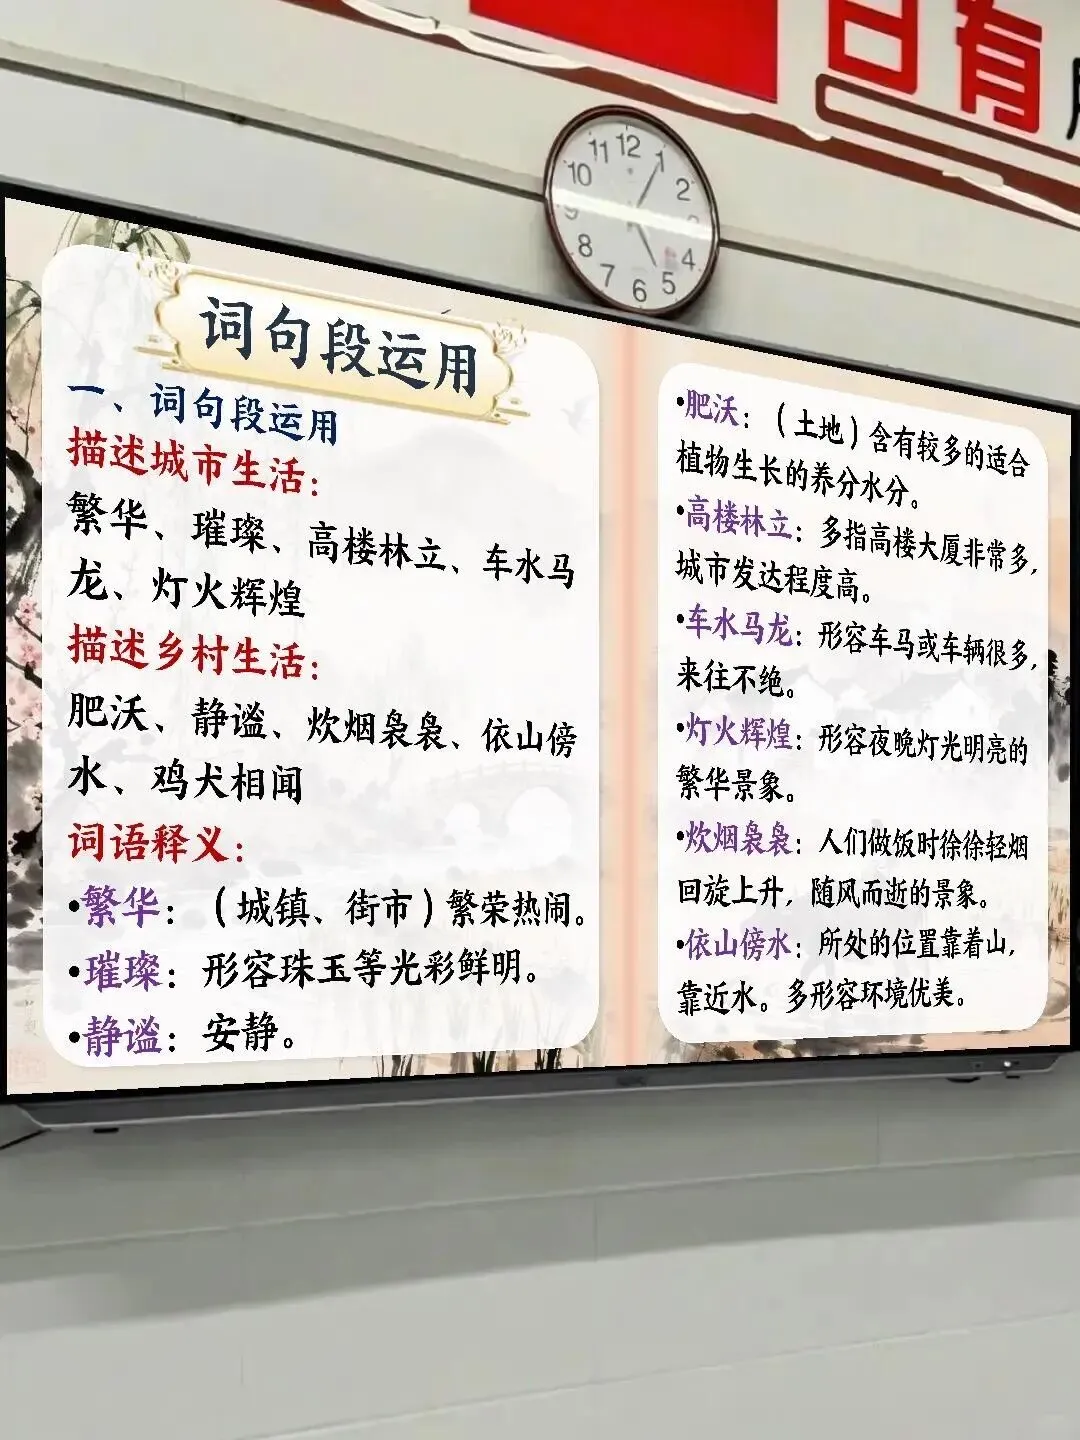 日有
11 12 1
10 2
9 3
8 4
7 6 5
词句段运用
一、词句段运用
描述城市生活：
繁华、璀璨、高楼林立、车水马
龙、灯火辉煌
描述乡村生活：
肥沃、静谧、炊烟袅袅、依山傍
水、鸡犬相闻
词语释义：
•繁华：（城镇、街市）繁荣热闹。
•璀璨：形容珠玉等光彩鲜明。
•静谧：安静。
•肥沃：（土地）含有较多的适合
植物生长的养分水分。
•高楼林立：多指高楼大厦非常多，
城市发达程度高。
•车水马龙：形容车马或车辆很多，
来往不绝。
•灯火辉煌：形容夜晚灯光明亮的
繁华景象。
•炊烟袅袅：人们做饭时徐徐轻烟
回旋上升，随风而逝的景象。
•依山傍水：所处的位置靠着山，
靠近水。多形容环境优美。